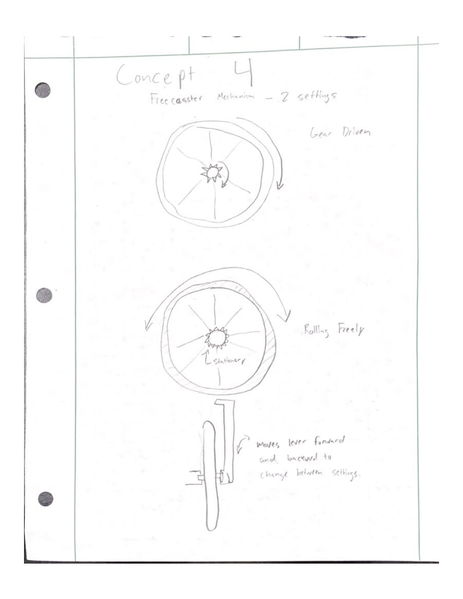 Concept 4
Freecoaster Mechanism - 2 settings
Gear Driven
Rolling Freely
stationary
moves lever forward
and backward to
change between settings.